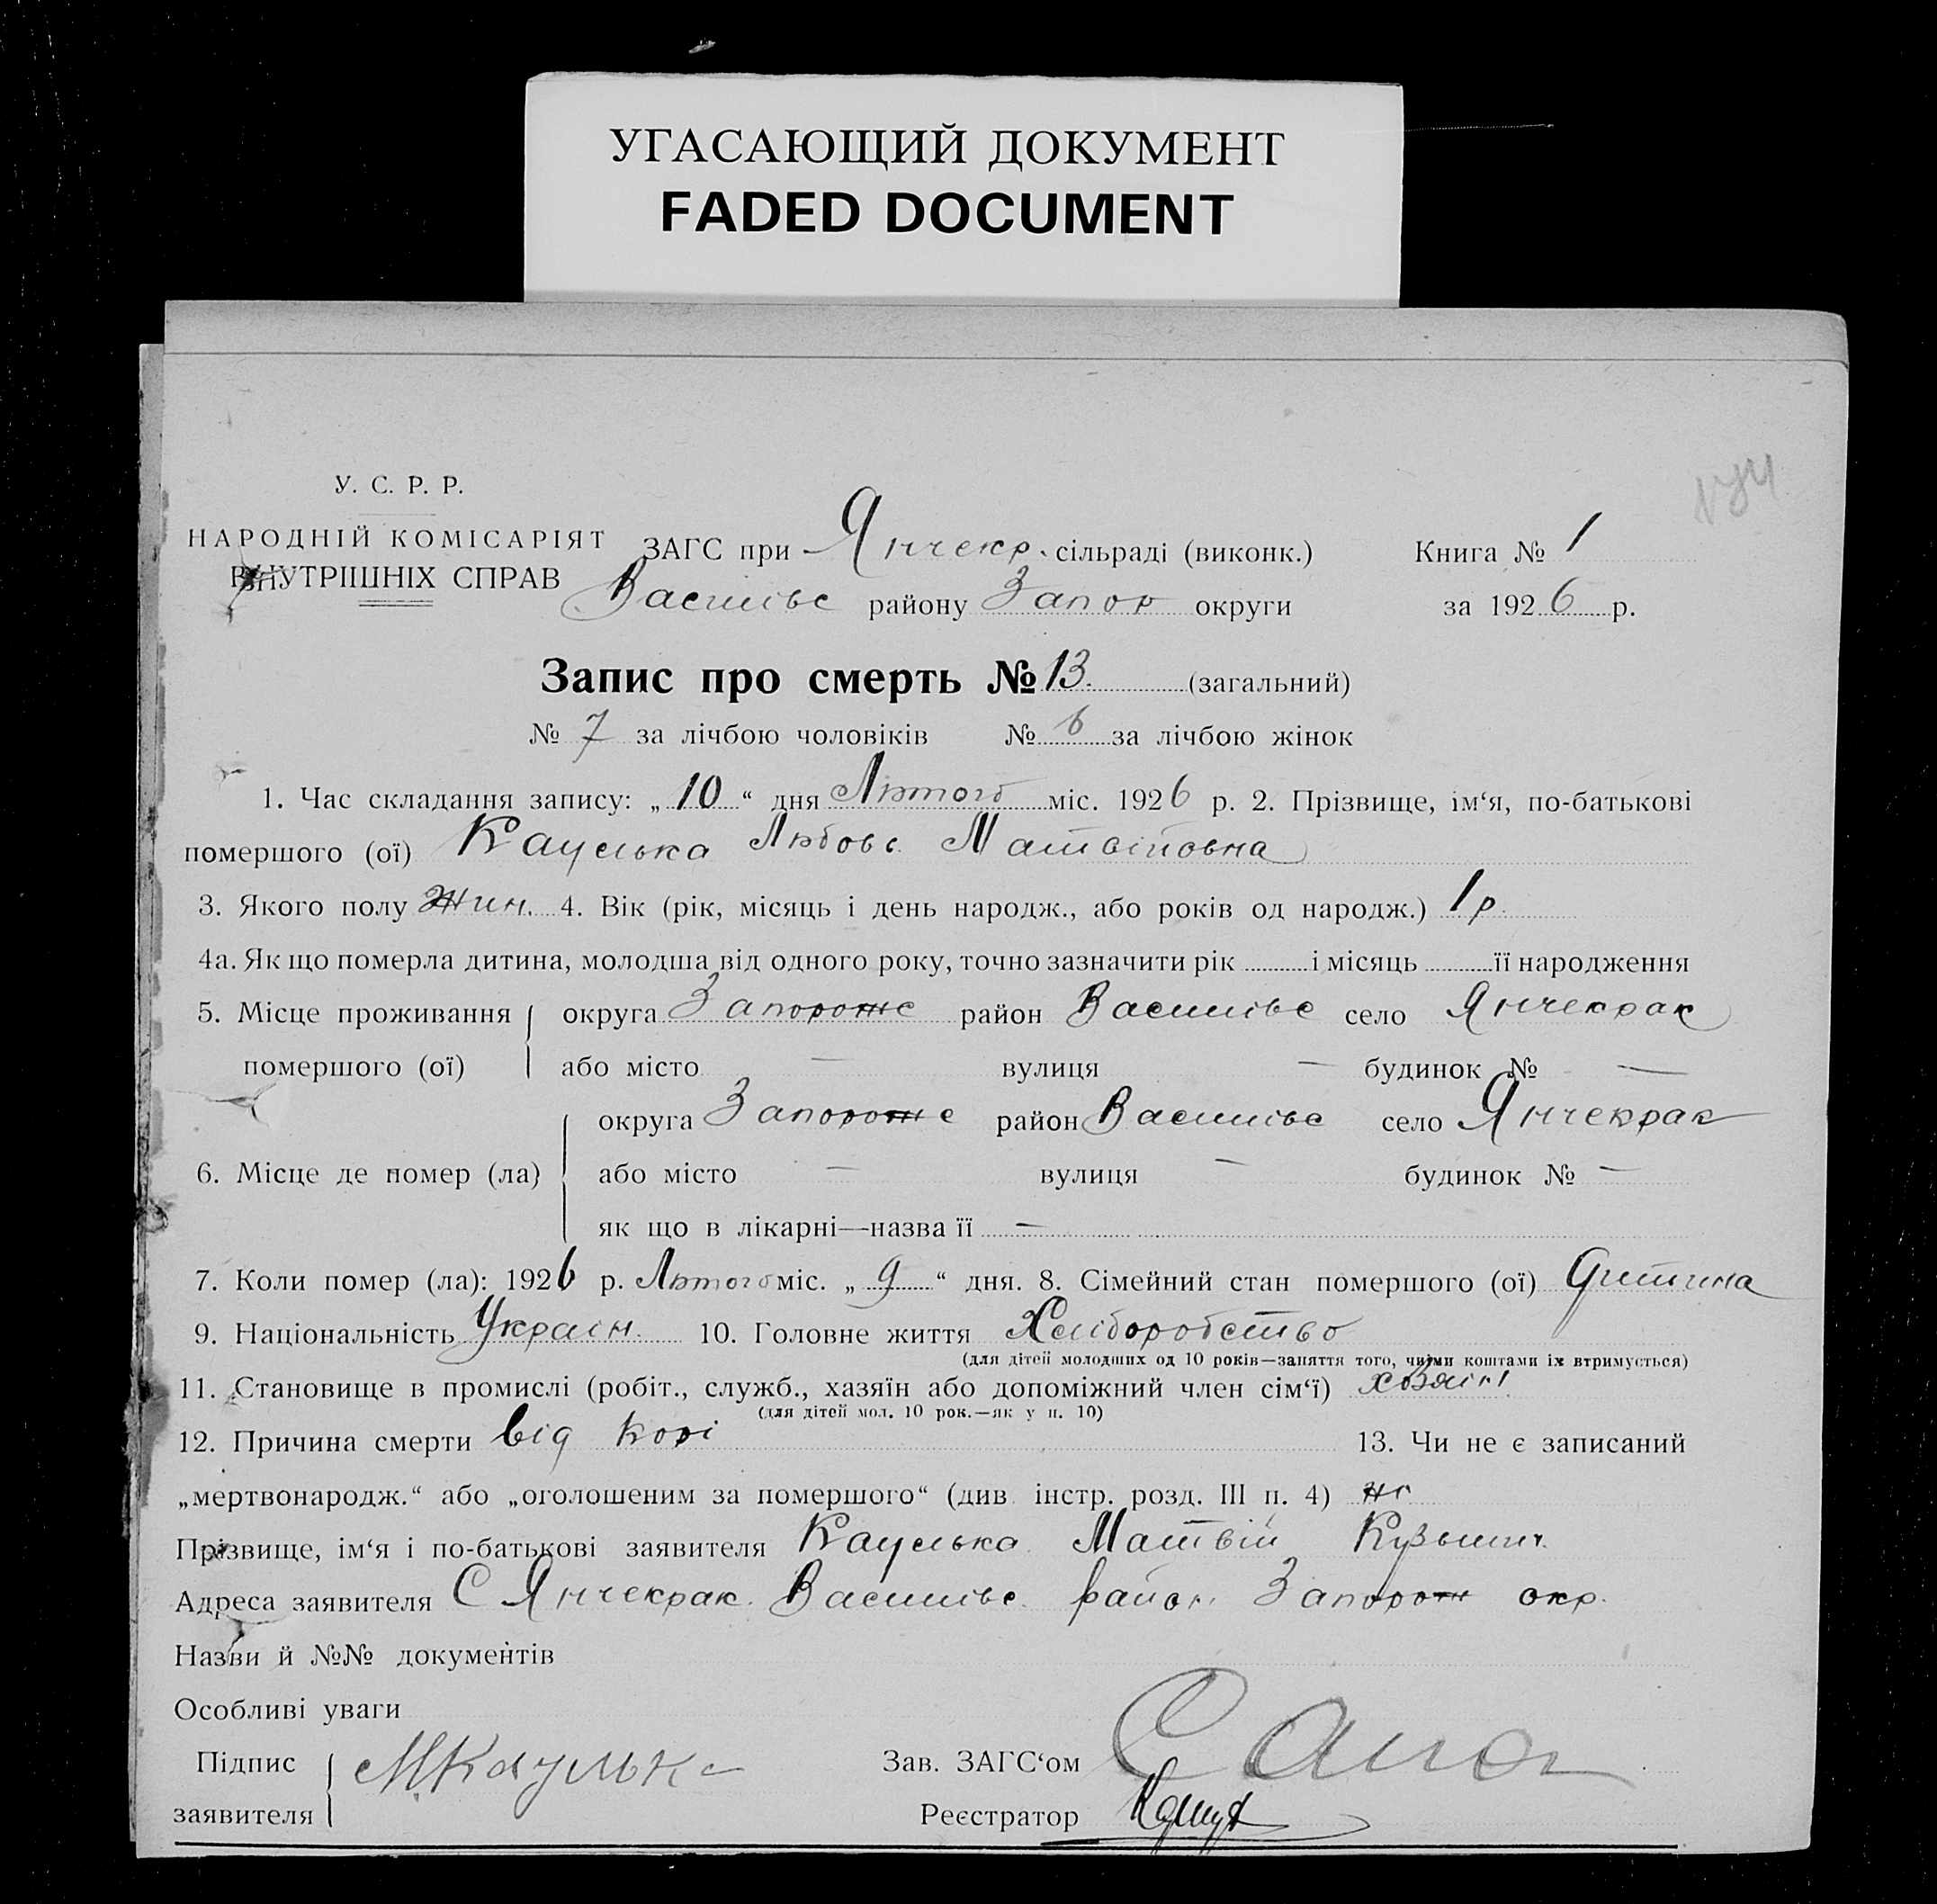 УГАСАЮЩИЙ ДОКУМЕНТ
FADED DOCUMENT
У. С. Р. Р.
НАРОДНІЙ КОМІСАРІЯТ
ВНУТРІШНІХ СПРАВ
ЗАГС при Янчекр. сільраді (виконк.) Книга № 1
Василівс району Запор округи за 1926 р.
Запис про смерть № 13. (загальний)
№ 7 за лічбою чоловіків № 6 за лічбою жінок
1. Час складання запису: „10“ дня Лютого міс. 1926 р. 2. Прізвище, ім‘я, по-батькові
помершого (ої) Кацулька Любовь Матвійовна
3. Якого полу жин. 4. Вік (рік, місяць і день народж., або років од народж.) 1 р.
4а. Як що померла дитина, молодша від одного року, точно зазначити рік і місяць її народження
5. Місце проживання помершого (ої) округа Запорожс район Василівс село Янчекрак
або місто — вулиця — будинок № —
6. Місце де помер (ла) округа Запорожс район Василівс село Янчекрак
або місто — вулиця — будинок № —
як що в лікарні—назва її —
7. Коли помер (ла): 1926 р. Лютого міс. „9“ дня. 8. Сімейний стан помершого (ої) дитина
9. Національність Україн. 10. Головне життя Хліборобство
(для дітей молодших од 10 років—заняття того, чиїми коштами їх втримується)
11. Становище в промислі (робіт., служб., хазяїн або допоміжний член сім‘ї) хозяїн
(для дітей мол. 10 рок.—як у п. 10)
12. Причина смерти від корі 13. Чи не є записаний
„мертвонародж.“ або „оголошеним за помершого“ (див. інстр. розд. III п. 4) ні
Прізвище, ім‘я і по-батькові заявителя Кацулька Матвій Кузьмич.
Адреса заявителя С Янчекрак. Василівс. район. Запорож окр.
Назви й №№ документів
Особливі уваги
Підпис заявителя МКацулька Зав. ЗАГС‘ом
Реєстратор